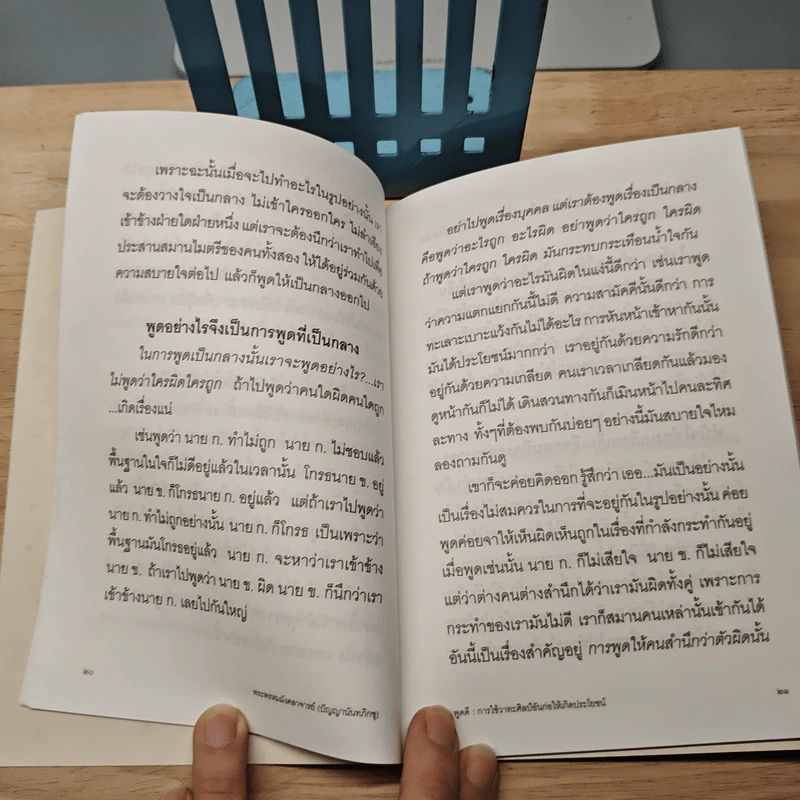 เพราะฉะนั้นเมื่อจะไปทำอะไรในรูปอย่างนั้น เรา
จะต้องวางใจเป็นกลาง ไม่เข้าใครออกใคร ไม่ลำเอียง
เข้าข้างฝ่ายใดฝ่ายหนึ่ง แต่เราจะต้องนึกว่าเราทำไปเพื่อ
ประสานสมานไมตรีของคนทั้งสอง ให้ได้อยู่ร่วมกันด้วย
ความสบายใจต่อไป แล้วก็พูดให้เป็นกลางออกไป
พูดอย่างไรจึงเป็นการพูดที่เป็นกลาง
ในการพูดเป็นกลางนั้นเราจะพูดอย่างไร?...เรา
ไม่พูดว่าใครผิดใครถูก ถ้าไปพูดว่าคนใดผิดคนใดถูก
...เกิดเรื่องแน่
เช่นพูดว่า นาย ก. ทำไม่ถูก นาย ก. ไม่ชอบแล้ว
พื้นฐานในใจก็ไม่ดีอยู่แล้วในเวลานั้น โกรธนาย ข. อยู่
แล้ว นาย ข. ก็โกรธนาย ก. อยู่แล้ว แต่ถ้าเราไปพูดว่า
นาย ก. ทำไม่ถูกอย่างนั้น นาย ก. ก็โกรธ เป็นเพราะว่า
พื้นฐานมันโกรธอยู่แล้ว นาย ก. จะหาว่าเราเข้าข้าง
นาย ข. ถ้าเราไปพูดว่า นาย ข. ผิด นาย ข. ก็นึกว่าเรา
เข้าข้างนาย ก. เลยไปกันใหญ่
๒๐
พระพรหมมังคลาจารย์ (ปัญญานันทภิกขุ)
อย่าไปพูดเรื่องบุคคล แต่เราต้องพูดเรื่องเป็นกลาง
คือพูดว่าอะไรถูก อะไรผิด อย่าพูดว่าใครถูก ใครผิด
ถ้าพูดว่าใครถูก ใครผิด มันกระทบกระเทือนน้ำใจกัน
แต่เราพูดว่าอะไรมันผิดในแง่นี้ดีกว่า เช่นเราพูด
ว่าความแตกแยกกันนี้ไม่ดี ความสามัคคีนั้นดีกว่า การ
ทะเลาะเบาะแว้งกันไม่ได้อะไร การหันหน้าเข้าหากันนั้น
มันได้ประโยชน์มากกว่า เราอยู่กันด้วยความรักดีกว่า
อยู่กันด้วยความเกลียด คนเราเวลาเกลียดกันแล้วมอง
ดูหน้ากันก็ไม่ได้ เดินสวนทางกันก็เมินหน้าไปคนละทิศ
ละทาง ทั้งๆที่ต้องพบกันบ่อยๆ อย่างนี้มันสบายใจไหม
ลองถามกันดู
เขาก็จะค่อยคิดออก รู้สึกว่า เออ...มันเป็นอย่างนั้น
เป็นเรื่องไม่สมควรในการที่จะอยู่กันในรูปอย่างนั้น ค่อย
พูดค่อยจาให้เห็นผิดเห็นถูกในเรื่องที่กำลังกระทำกันอยู่
เมื่อพูดเช่นนั้น นาย ก. ก็ไม่เสียใจ นาย ข. ก็ไม่เสียใจ
แต่ว่าต่างคนต่างสำนึกได้ว่าเรามันผิดทั้งคู่ เพราะการ
กระทำของเรามันไม่ดี เราก็สมานคนเหล่านั้นเข้ากันได้
อันนี้เป็นเรื่องสำคัญอยู่ การพูดให้คนสำนึกว่าตัวผิดนั้น
๒๑
พูดดี : การใช้วาทะศิลป์อันก่อให้เกิดประโยชน์